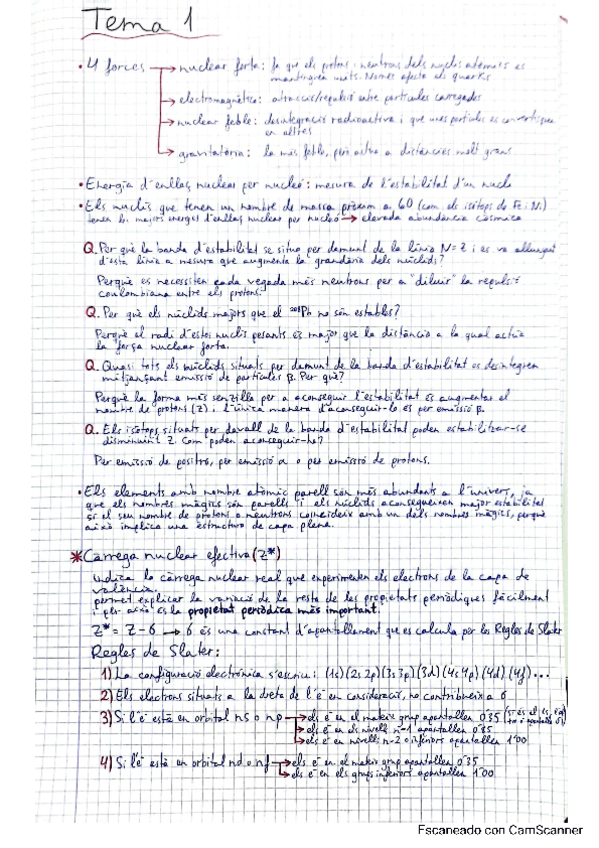 Tema 1
• 4 forces → nuclear forta: fa que els protons i neutrons dels nuclis atòmics es
mantinguen units. Només afecta els quarks
→ electromagnètica: atracció/repulsió entre partícules carregades
→ nuclear feble: desintegració radioactiva i que unes partícules es convertisquen
en altres
→ gravitatòria: la més feble, però actua a distàncies molt grans
• Energia d'enllaç nuclear per nucleó: mesura de l'estabilitat d'un nucli
• Els nuclis que tenen un nombre de massa pròxim a 60 (com els isòtops de Fe i Ni)
tenen les majors energies d'enllaç nuclear per nucleó → elevada abundància còsmica
Q. Per què la banda d'estabilitat se situa per damunt de la línia N=Z i es va allunyant
d'esta línia a mesura que augmenta la grandària dels núclids?
Perquè es necessiten cada vegada més neutrons per a "diluir" la repulsió
coulombiana entre els protons.
Q. Per què els núclids majors que el ²⁰⁸Pb no són estables?
Perquè el radi d'estos nuclis pesants és major que la distància a la qual actua
la força nuclear forta.
Q. Quasi tots els núclids situats per damunt de la banda d'estabilitat es desintegren
mitjançant emissió de partícules β. Per què?
Perquè la forma més senzilla per a aconseguir l'estabilitat és augmentar el
nombre de protons (Z) i l'única manera d'aconseguir-lo és per emissió β.
Q. Els isòtops situats per davall de la banda d'estabilitat poden estabilitzar-se
disminuint Z. Com poden aconseguir-ho?
Per emissió de positró, per emissió α o per emissió de protons.
• Els elements amb nombre atòmic parell són més abundants a l'univers, ja
que els nombres màgics són parells i els núclids aconsegueixen major estabilitat
si el seu nombre de protons o neutrons coincideix amb un dels nombres màgics, perquè
això implica una estructura de capa plena.
* Càrrega nuclear efectiva (Z*)
Indica la càrrega nuclear real que experimenten els electrons de la capa de
valència.
permet explicar la variació de la resta de les propietats periòdiques fàcilment
i per això és la propietat periòdica més important.
Z* = Z - б → б és una constant d'apantallament que es calcula per les Regles de Slater
Regles de Slater:
1) La configuració electrònica s'escriu: (1s)(2s2p)(3s3p)(3d)(4s4p)(4d)(4f)...
2) Els electrons situats a la dreta de l'e⁻ en consideració, no contribueixen a б
3) Si l'e⁻ està en orbital ns o np → els e⁻ en el mateix grup apantallen 0'35
→ els e⁻ en els nivells n-1 apantallen 0'85
→ els e⁻ en nivells n-2 o inferiors apantallen 1'00
4) Si l'e⁻ està en orbital nd o nf → els e⁻ en el mateix grup apantallen 0'35
→ els e⁻ en els grups inferiors apantallen 1'00
Escaneado con CamScanner